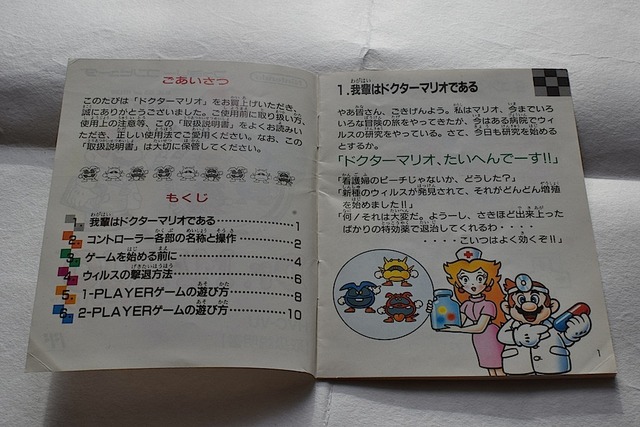 ごあいさつ
このたびは「ドクターマリオ」をお買上げいただき、
誠にありがとうございました。ご使用前に取り扱い方、
使用上の注意等、この「取扱説明書」をよくお読みい
ただき、正しい使用法でご愛用ください。なお、この
「取扱説明書」は大切に保管してください。
もくじ
1. 我輩はドクターマリオである……………… 1
2. コントローラー各部の名称と操作………… 2
3. ゲームを始める前に………………………… 4
4. ウィルスの撃退方法………………………… 6
5. 1-PLAYERゲームの遊び方……………… 8
6. 2-PLAYERゲームの遊び方……………… 10
1.我輩はドクターマリオである
やあ皆さん、ごきげんよう。私はマリオ、今までいろ
いろな冒険の旅をやってきたが、今はある病院でウィ
ルスの研究をやっている。さて、今日も研究を始める
とするか。
「ドクターマリオ、たいへんでーす!!」
「看護婦のピーチじゃないか、どうした?」
「新種のウィルスが発見されて、それがどんどん増殖
を始めました!!」
「何!それは大変だ。ようーし、さきほど出来上った
ばかりの特効薬で退治してくれるわ・・・・
・・・・・こいつはよく効くぞ!!」
1